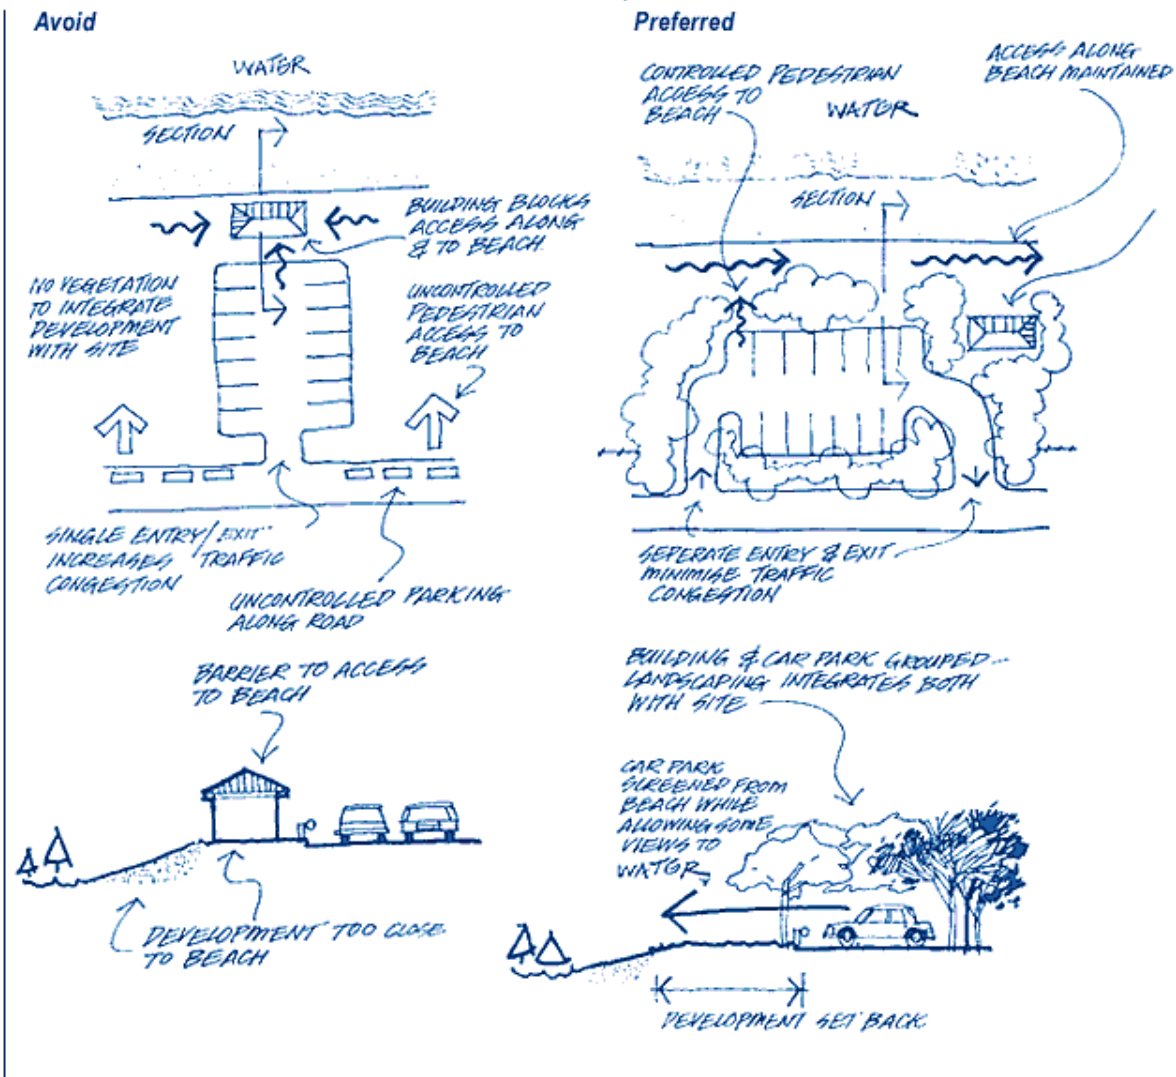 Avoid
WATER
SECTION
BUILDING BLOCKS
ACCESS ALONG
& TO BEACH.
NO VEGETATION
TO INTEGRATE
DEVELOPMENT
WITH SITE
UNCONTROLLED
PEDESTRIAN
ACCESS TO
BEACH
SINGLE ENTRY/EXIT
INCREASES TRAFFIC
CONGESTION
UNCONTROLLED PARKING
ALONG ROAD
BARRIER TO ACCESS
TO BEACH
DEVELOPMENT TOO CLOSE
TO BEACH
Preferred
CONTROLLED PEDESTRIAN
ACCESS TO
BEACH
WATER
ACCESS ALONG
BEACH MAINTAINED
SECTION
SEPERATE ENTRY & EXIT
MINIMISE TRAFFIC
CONGESTION
BUILDING & CAR PARK GROUPED -
LANDSCAPING INTEGRATES BOTH
WITH SITE
CAR PARK
SCREENED FROM
BEACH WHILE
ALLOWING SOME
VIEWS TO
WATER
DEVELOPMENT SET BACK